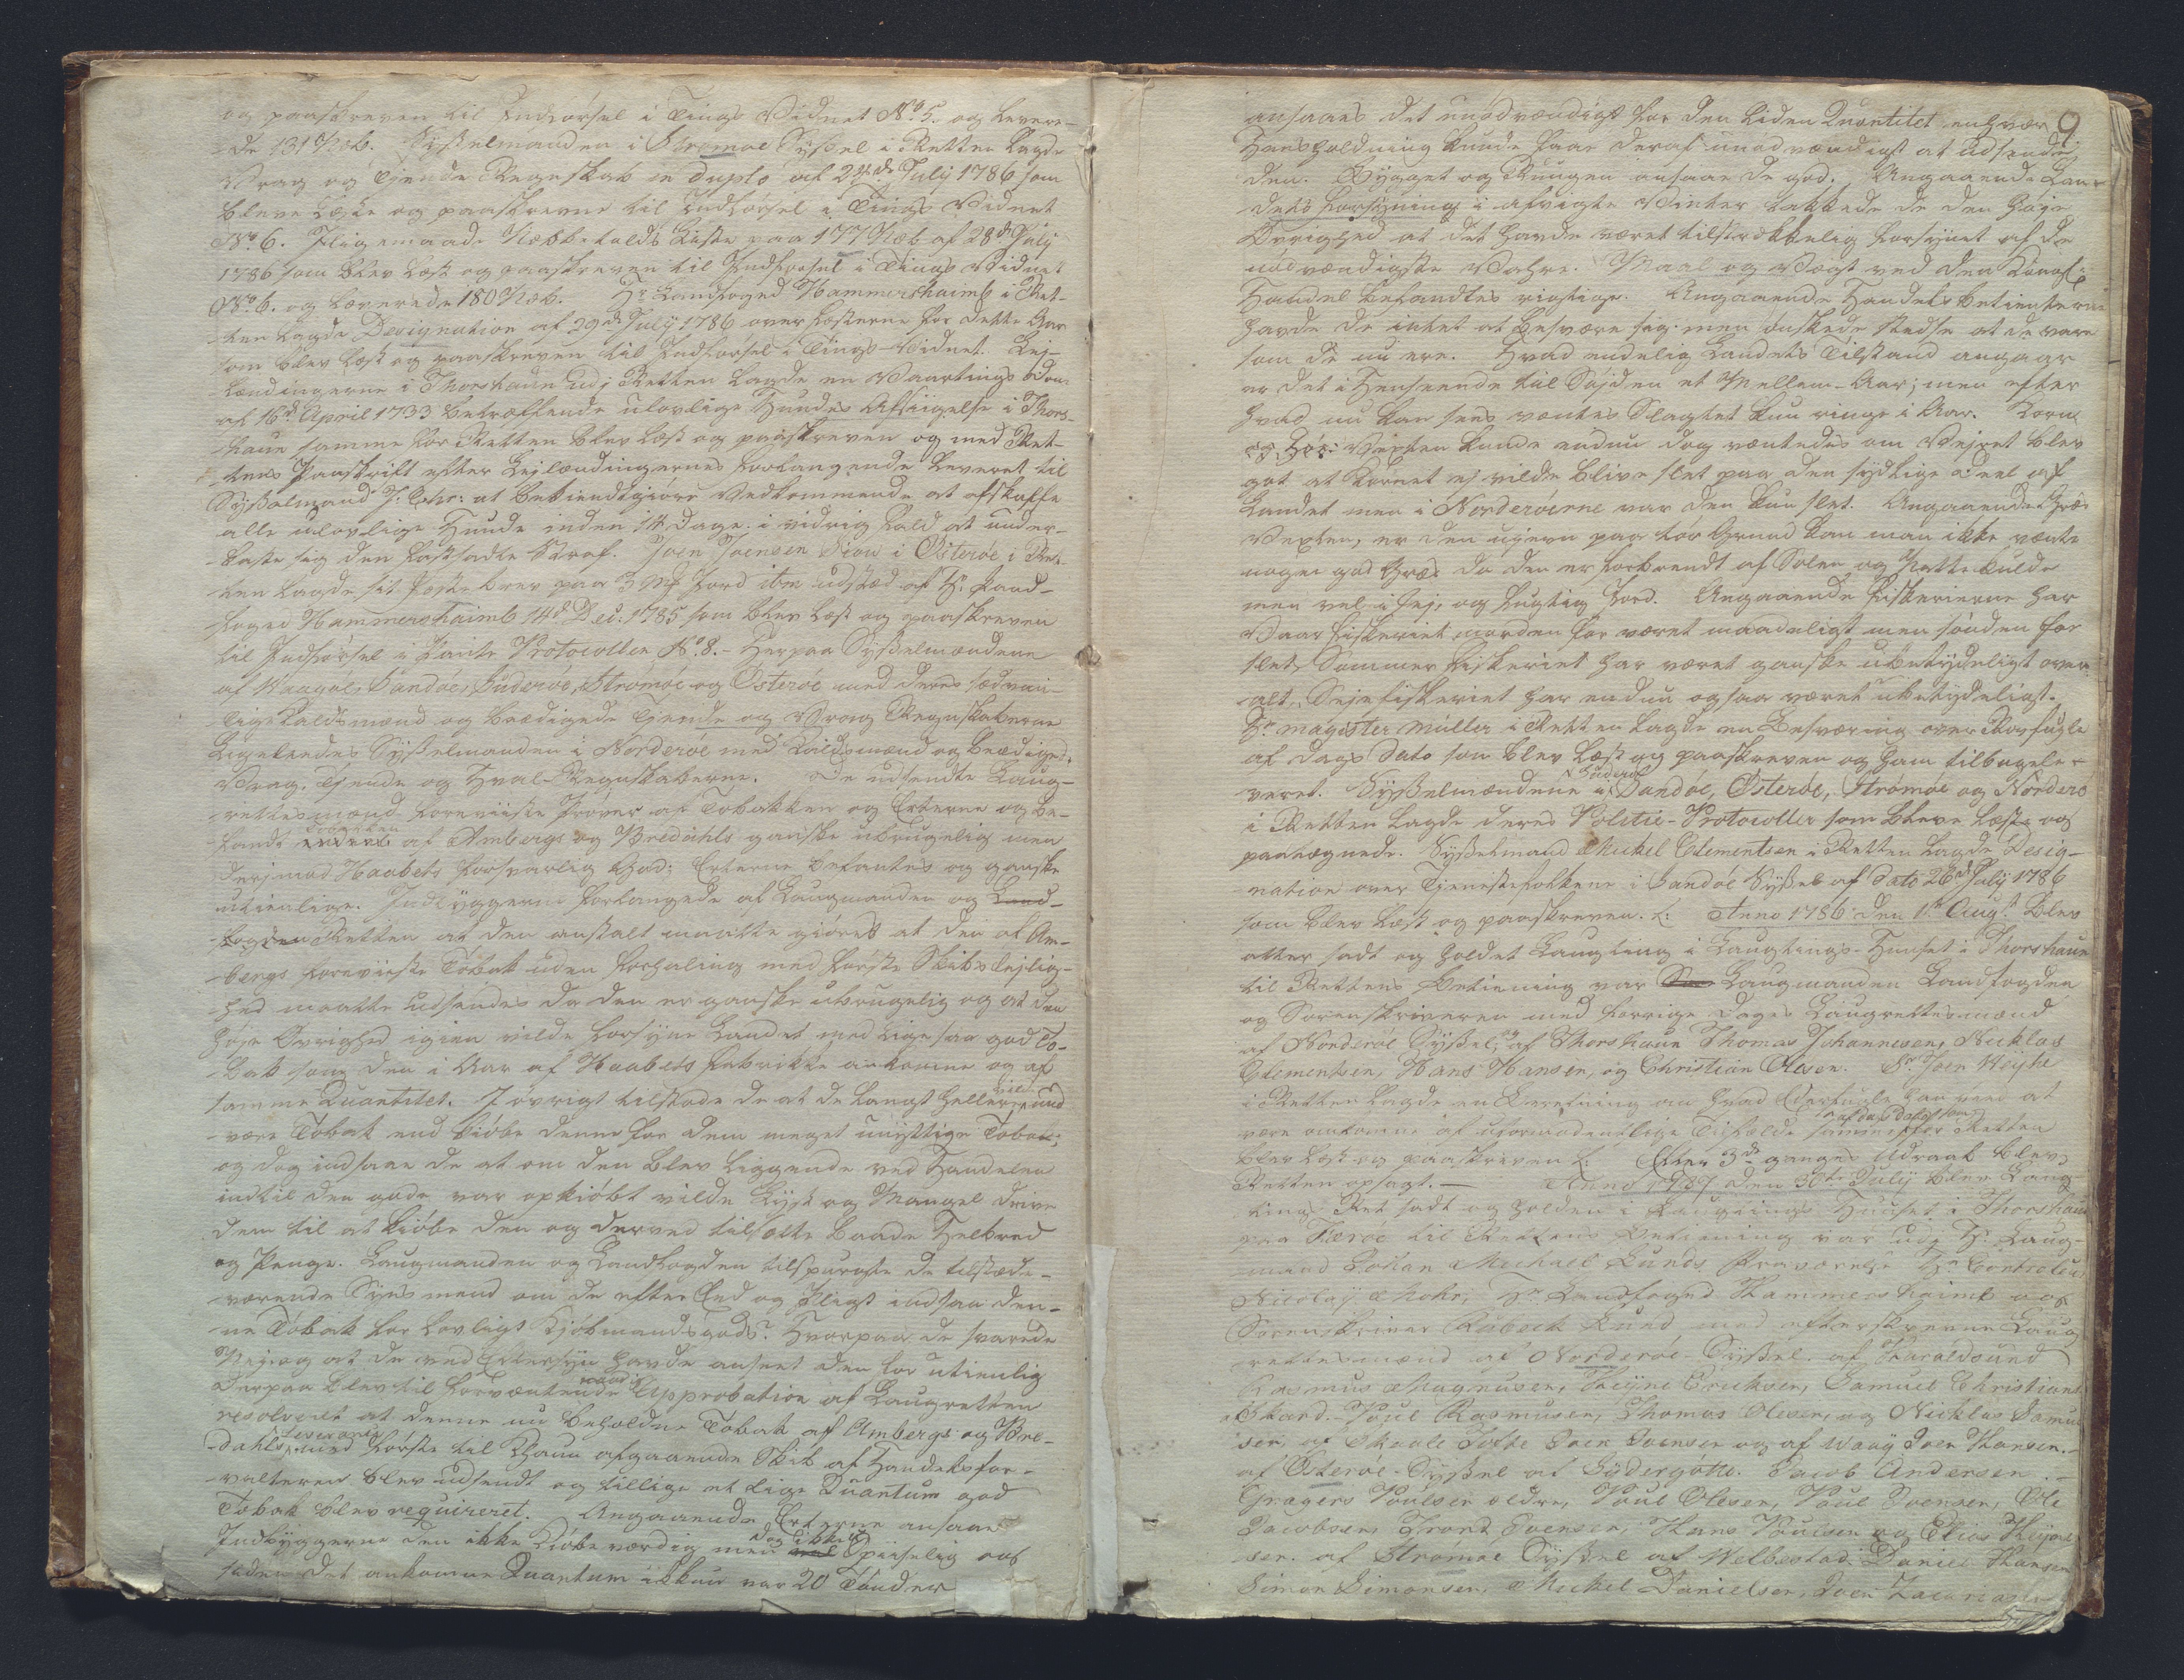 og paaskreven til Indførsel i Tings Vidnet No 5. og levere-
-de 131 Næb. Syßelmanden i Strømøe Syßel i Retten lagde
Vrag og Tjende Regnskab in duplo af 24de July 1786 som
bleve læste og paaskrevne til Indførsel i Tings Vidnet
No 6. Ligemaade Næbbetolds Liste paa 177 Næb af 28de July
1786 som blev læst og paaskreven til Indførsel i Tings Vidnet
No 6. og leverede 180 Næb. Hr Landfoged Hammershaimb i Ret-
-ten lagde Designation af 29de July 1786 over Løsterne for dette Aar
som blev læst og paaskreven til Indførsel i Tings-Vidnet. Lej-
-lændingerne i Thorshaun udj Retten lagde en Vaartings Dom
af 16de April 1733 betræffende ulovlige Hundes Afsigelse i Thors-
-haun samme for Retten blev læst og paaskreven og med Ret-
-tens Paaskrift efter Lejlændingernes Forlangende leveret til
Syßelmand J: Chr: at bekiendtgiøre Vedkommende at afskaffe
alle ulovlige Hunde inden 14 Dage. i vidrig Fald at under-
-kaste sig den fastsadte Straf. Joen Joensen Skou i Østerøe i Ret-
-ten lagde sit Feste brev paa 3 Mk Jord ibm udsted af Hr. Land-
-foged Hammershaimb 14de Dec: 1785 som blev læst og paaskreven
til Indførsel i Pante Protocollen No 8. - Herpaa Syßelmændene
af Waagøe, Sandøe, Suderøe, Strømøe og Østerøe med deres sædvan-
-lige Toldsmænd og beædigede Tjende og Vrag Regnskaberne
Ligeledes Syßelmanden i Norderøe med Toldsmænd og beædigede
Vrag, Tjende og Hval-Regnskaberne. De udsendte Laug-
-rettesmænd foreviiste Prøver af Tobakken og Erterne og be-
-fandt Tobakken af Ambergs og Bredahls ganske ubrugelig men
derimod Haabets forsvarlig god: Erterne befantes og ganske
utienlige. Indbyggerne forlangede af Laugmanden og Land-
-fogden Retten at den anstalt maatte giøres at den af Am-
-bergs foreviiste Tobak uden Forhaling med første Skibs Lejlig-
-hed maatte udsendes da den er ganske ubrugelig og at den
høje Øvrighed igien vilde forsyne Landet med lige saa god To-
-bak som den i Aar af Haabets Fabrikke ankomne og af
samme Quantitet. I øvrigt tilstode de at de langt heller vilde und-
-være Tobak end kiøbe denne for dem meget unyttige Tobak:
og dog indsaae de at om den blev liggende ved Handelen
indtil den gode var opkiøbt vilde Lyst og Mangel drive
dem til at kiøbe den og derved tilsætte baade Helbred
og Penge. Laugmanden og Landfogden tilspurgte de tilstæde-
-værende Synsmend om de efter Eed og Pligt indsaae den-
-ne Tobak for lovligt Kjøbmandsgods? Hvorpaa de svarede
Nej og at de ved Eftersyn havde anseet den for utienlig
Derpaa blev til forventende naadig Approbation af Laugretten
resolveret at denne nu beholdne Tobak af Ambergs og Bre-
-dahls med første til Khaun afgaaende Skib af Handelsfor-
-valteren blev udsendt og tillige et lige Quantum god
Tobak blev requireret. Angaaende Erterne ansaae
Indbyggerne den ikke kiøbe værdig men dog Spiiselig og
siden det ankomne Quantum ikkun var 20 Tønder
9.
ansaaes det unødvændigt for den liden Quantitet enhver
Huusholdning kunde faae deraf unødvændigt at udsende
den. Bygget og Ruugen ansaae de god. Angaaende Lan-
-dets Forsyning i afvigte Vinter takkede de den høje
Øvrighed at det havde været tilstrækkelig forsynet af de
nødvændigste Vahre. Maal og Vægt ved den Kongl:
Handel befandtes rigtige. Angaaende Handels betienterne
havde de intet at besvære sig: men ønskede stedse at de vare
som de nu ere. Hvad endelig Landets Tilstand angaar
er det i Henseende til Søjden et Mellem-Aar; men efter
hvad nu kan sees ventes Slagtet kun ringe i Aar. Korn
og Hø: Vexten kunde endnu dog ventedes om Vejret blev
got at Kornet ej vilde blive slet paa den sydlige Deel af
Landet men i Norderøerne var den kun slet. Angaaende Græs
Vexten, er den ujevn paa tør Grund kan man ikke vænte
nogen god Græs da den er forbrendt af Solen og Natte Kulde
men vel i sej, og fugtig Jord. Angaaende Fiskerierne har
Vaar fiskeriet norden for været maadeligt men sønden for
slet, Sommer fiskeriet har været ganske ubetydeligt over
alt, Sejefiskeriet har endnu ogsaa været ubetydeligt.
Hr magister Müller i Retten lagde en Besværing over Rovfugle
af dags Dato som blev læst og paaskreven og ham tilbagele-
-veret. Syßelmændene i Suderøe Sandøe, Østerøe, Strømøe og Norderø
i Retten lagde deres Politie-Protocoller som bleve læste og
paategnede. Syßelmand Mickel Clementsen i Retten lagde Desig-
-nation over Tjenestefolkene i Sandøe Syßel af Dato 26de July 1786
som blev læst og paaskreven. L: Anno 1786 den 1te Augt. blev
atter sadt og holdet Laugting i Laugtings-Huuset i Thorshaun
til Rettens Betiening var Laugmanden Landfogden
og Sorenskriveren med forrige Dages Laugrettesmænd
af Norderøe Syßel, og af Thorshaun Thomas Johannesen, Nicklas
Clementsen, Hans Hansen, og Christian Olesen. Sr. Joen Weyhe
i Retten lagde en Beretning om hvad Ederfugle han veed at
være omkomne af uformodentlige Tilfælde af dags Dato som samme for Retten
blev læst og paaskreven L: Efter 3de ganges Udraab blev
Retten opsagt. — Anno 1787 den 30te July blev Laug-
-ting Ret sadt og holden i Laugtings Huuset i Thorshaun
paa Færøe til Rettens Betiening var udj Hr Laug-
-mand Johan Michael Lunds Fraværelse Hr Controleur
Nicolaj Mohr, Hr Landfoged Hammershaimb og
Sorenskriver Rübeck Lund med efterskrevne Laug
-rettesmænd af Norderøe-Syßel. af Haraldsund
Rasmus Magnusen, Heyne Ericksen, Samuel Christians
i Skard. - Poul Rasmusen, Thomas Olesen, og Nicklas Samu
-sen, af Skaale Tofte Joen Joensen og af Waay Joen Hansen.-
af Østerøe-Syßel af Sydergøthe. Jacob Andersen. -
Grægers Poulsen ældre, Poul Olesen, Poul Joensen, Ole
Jacobsen, Trond Joensen, Hans Poulsen og Elias Heyne-
sen. af Strømøe Syßel af Welbestad. Daniel Hansen
Simon Simonsen, Mickel Danielsen, Joen Zacariasen